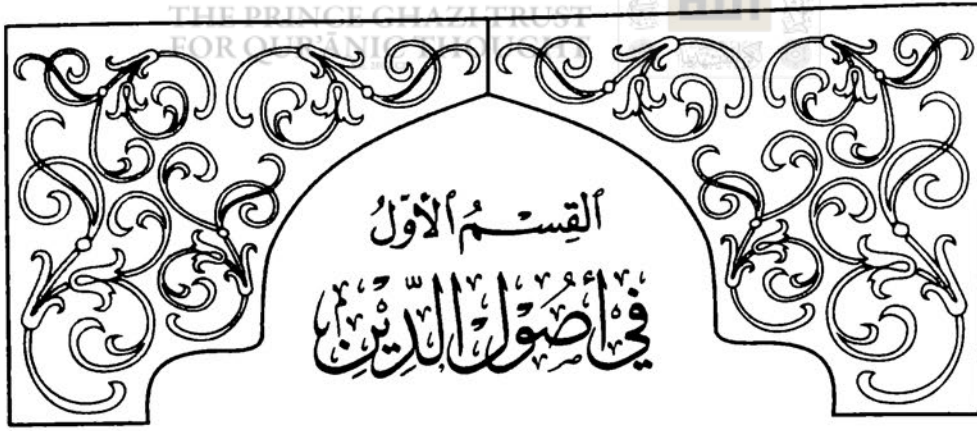 THE PRINCE GHAZI TRUST
FOR QUR'ĀNIC THOUGHT
القِسْمُ الأوّلُ
في أصُول الدِّينِ